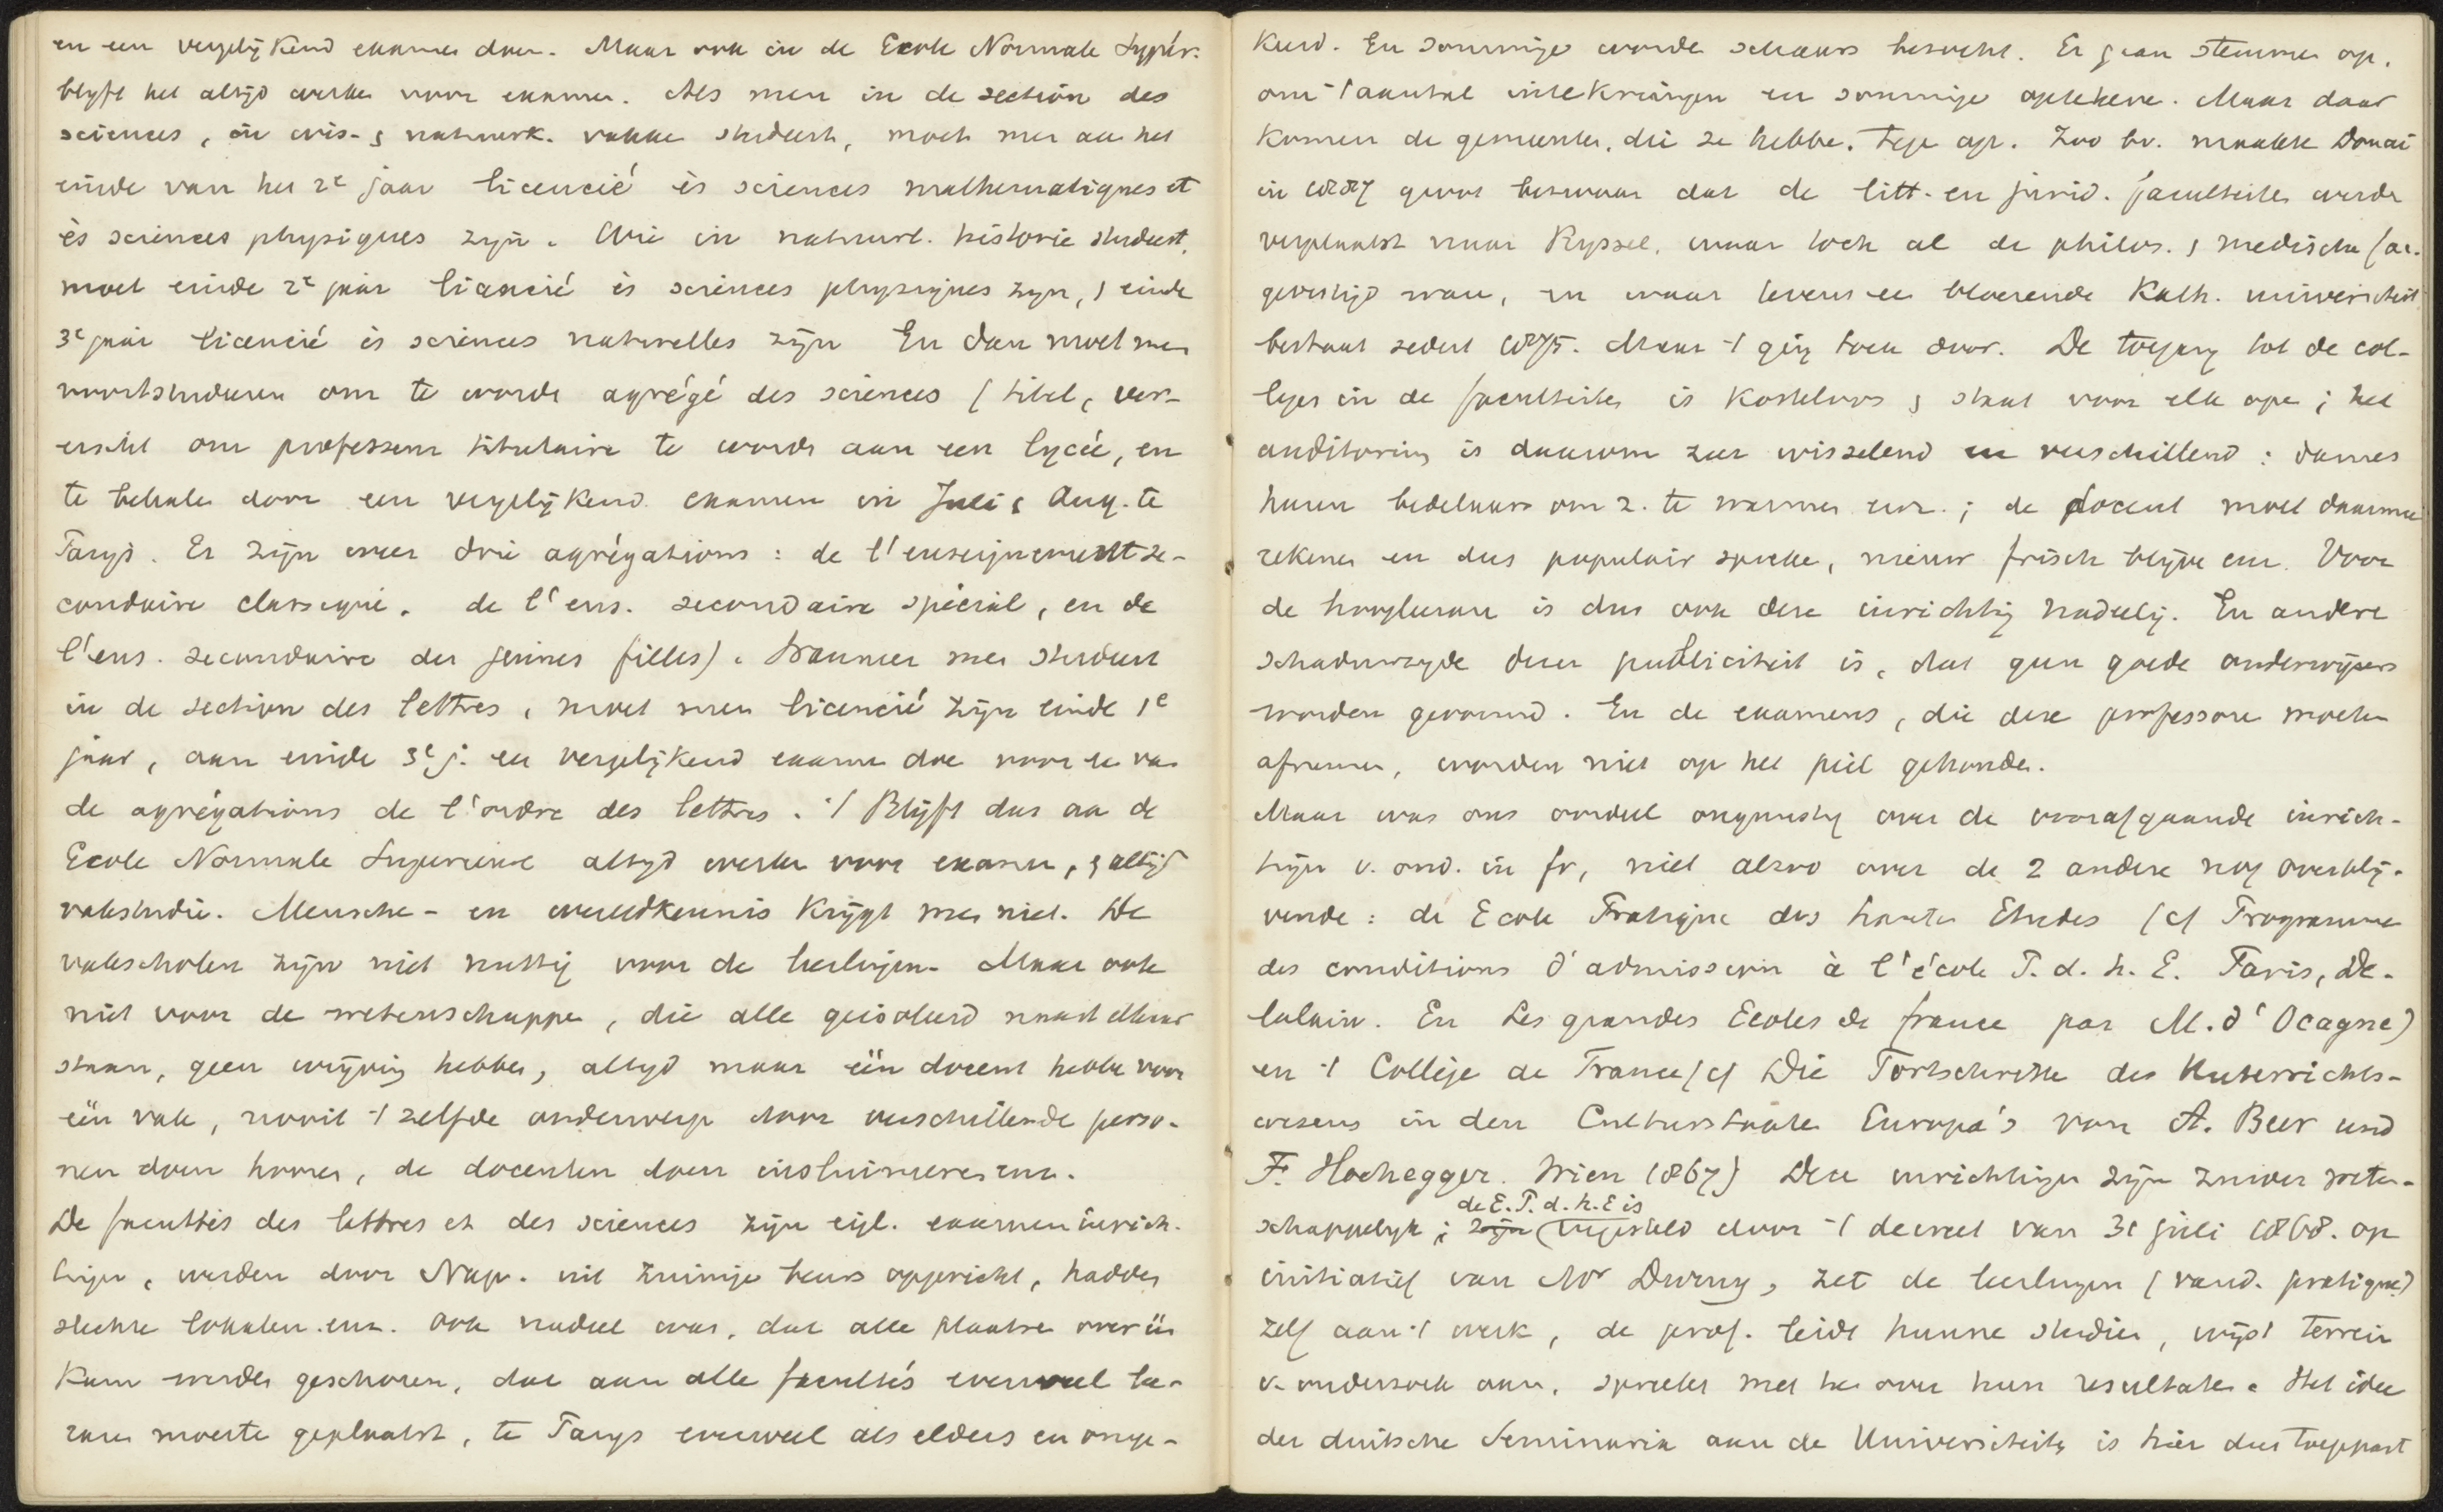 en een vergelijkend examen doen. Maar ook in de Ecole Normale Supér.
blyft het altijd werken voor examen. Als men in de section des
sciences, in wis- & natuurk. vakken studeert, moet men aan het
einde van het 2e jaar licencié ès sciences mathématiques et
ès sciences physiques zijn. Wie in natuurl. historie studeert,
moet einde 2e jaar licencié ès sciences physiques zijn, & einde
3e jaar licencié ès sciences naturelles zijn En dan moet men
voortstuderen om te worde agrégé des sciences (titel, ver-
eischt om professeur titulaire te worde aan een lycée, en
te behalen door een vergelijkend examen in Juli & Aug. te
Parijs. Er zijn weer drie agrégations: de l'enseignement se-
condaire classique, de l'ens. secondaire spécial, en de
l'ens. secondaire des jeunes filles). Wanneer men studeert
in de section des lettres, moet men licencié zijn einde 1e
jaar, aan einde 3e j. een vergelijkend examen doe voor ee van
de agrégations de l'ordre des lettres. 't Blijft dus aan de
Ecole Normale Superieure altijd werken voor examen, & altijd
vakstudie. Mensche- en wereldkennis krijgt men niet. De
vakscholen zijn niet nuttig voor de leerlingen. Maar ook
niet voor de wetenschappen, die alle geïsoleerd naast elkaar
staan, geen wrijving hebben, altijd maar één docent hebbe voor
één vak, nooit 't zelfde onderwerp door verschillende perso-
nen doen horen, de docenten doen insluimeren enz.
De facultés des lettres et des sciences zijn eigl. examen inrich-
tingen, werden door Nap. uit zuinige beurs opgericht, hadden
slechte lokalen enz. Ook nadeel was, dat alle plaatsen over één
kam werden geschoren, dat aan alle facultés evenveel le-
raren moeste geplaatst, te Parys evenveel als elders en omge-
keerd. En sommige worde schaars bezocht. Er gaan stemmen op,
om 't aantal inte krimpen en sommige opteheve. Maar daar
komen de gemeenten, die ze hebbe, tege op. Zoo bv. maakte Douai
in 1887 groot bezwaar dat de litt. en jurid. faculteiten werde
verplaatst naar Ryssel, waar toch al de philos. & medische fac.
gevestigd ware, en waar tevens een bloeiende Kath. universiteit
bestaat sedert 1875. Maar 't ging toch door. De toegang tot de col-
leges in de faculteiten is kosteloos & staat voor elk ope; het
auditorium is daarom zeer wisselend en verschillend: dames
huren bedelaars om z. te warmen enz.; de docent moet daarmee
rekenen en dus populair spreke, nieuw frisch blijve enz. Voor
de hoogleeraar is dus ook deze inrichting nadeelig. En andere
schaduwzyde dezer publiciteit is, dat geen goede onderwijzers
worden gevormd. En de examens, die deze professore moeten
afnemen, worden niet op het peil gehouden.
Maar was ons oordeel ongunstig over de voorafgaande inrich-
tingen v. ond. in fr, niet alzoo over de 2 andere nog overblij-
vende: de Ecole Pratique des hautes Etudes (cf Programme
des conditions d'admission à l'école P. d. h. E. Paris, De-
lalain. En Les grandes Ecoles de france par M. d'Ocagne)
en 't Collège de France (cf Die Fortschritte des Unterrichts-
wesens in den Culturstaaten Europa's von A. Beer und
F. Hochegger. Wien 1867) Deze inrichtingen zijn zuiver weten-
schappelyk; zijn de E. P. d. h. E is (ingesteld door 't decreet van 31 juli 1868. op
initiatief van Mr Duruy, zet de leerlingen (vand. pratique)
zelf aan 't werk, de prof. leidt hunne studien, wijst terrein
v. onderzoek aan, spreekt met hen over hun resultaten. Het idee
der duitsche Seminaria aan de Universiteite is hier dus toegepast